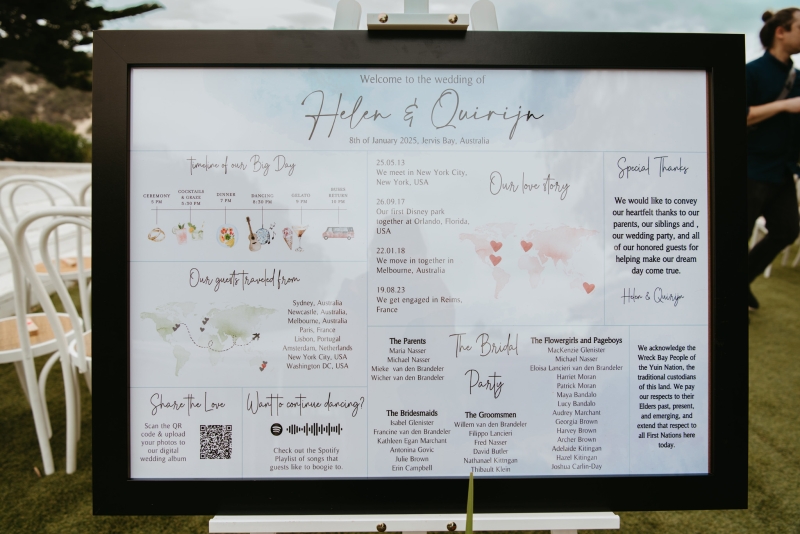 Welcome to the wedding of
Helen & Quirijn
8th of January 2025, Jervis Bay, Australia
timeline of our Big Day
CEREMONY
3 PM
COCKTAILS
& GRAZE
3:30 PM
DINNER
7 PM
DANCING
8:30 PM
GELATO
9 PM
BUSES
RETURN
10 PM
Our guests traveled from
Sydney, Australia
Newcastle, Australia,
Melbourne, Australia
Paris, France
Lisbon, Portugal
Amsterdam, Netherlands
New York City, USA
Washington DC, USA
Share the Love
Scan the QR
code & upload
your photos to
our digital
wedding album
Want to continue dancing?
Check out the Spotify
Playlist of songs that
guests like to boogie to.
25.05.13
We meet in New York City,
New York, USA
26.09.17
Our first Disney park
together at Orlando, Florida,
USA
22.01.18
We move in together in
Melbourne, Australia
19.08.23
We get engaged in Reims,
France
Our love story
Special Thanks
We would like to convey
our heartfelt thanks to our
parents, our siblings and ,
our wedding party, and all
of our honored guests for
helping make our dream
day come true.
Helen & Quirijn
The Bridal
Party
The Parents
Maria Nasser
Michael Nasser
Mieke van den Brandeler
Wicher van den Brandeler
The Bridesmaids
Isabel Glenister
Francine van den Brandeler
Kathleen Egan Marchant
Antonina Govic
Julie Brown
Erin Campbell
The Groomsmen
Willem van den Brandeler
Filippo Lancieri
Fred Nasser
David Butler
Nathanael Kitingan
Thibault Klein
The Flowergirls and Pageboys
MacKenzie Glenister
Michael Nasser
Eloisa Lancieri van den Brandeler
Harriet Moran
Patrick Moran
Maya Bandalo
Lucy Bandalo
Audrey Marchant
Georgia Brown
Harvey Brown
Archer Brown
Adelaide Kitingan
Hazel Kitingan
Joshua Carlin-Day
We acknowledge the
Wreck Bay People of
the Yuin Nation, the
traditional custodians
of this land. We pay
our respects to their
Elders past, present,
and emerging, and
extend that respect to
all First Nations here
today.